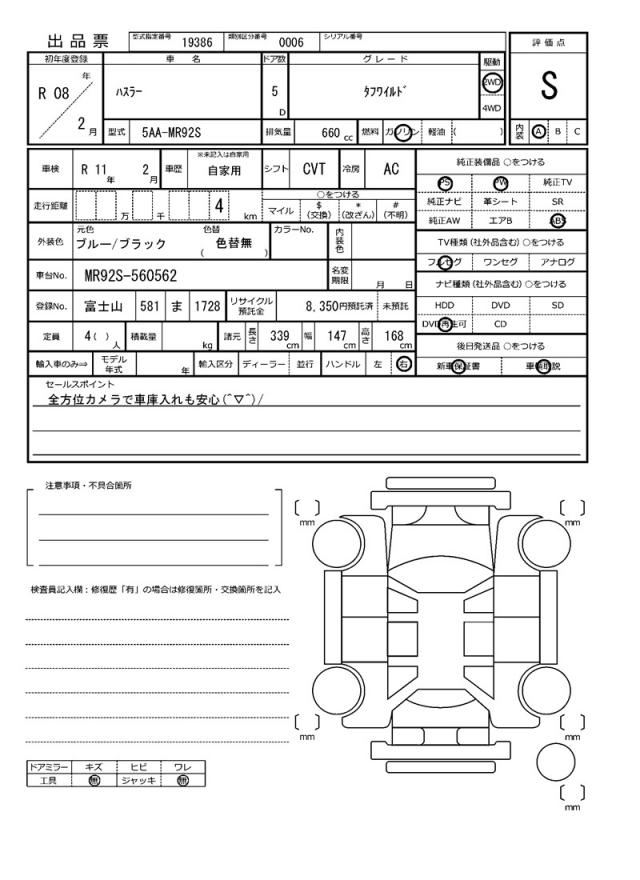 出品票 型式指定番号 19386 類別区分番号 0006 シリアル番号
評価点
S
内装 A B C
初年度登録 車名 ドア数 グレード 駆動
R 08 年 2 月 ハスラー 5 D タフワイルド 2WD 4WD
型式 5AA-MR92S 排気量 660 cc 燃料 ガソリン 軽油 ( )
車検 R 11 年 2 月 車歴 ※未記入は自家用 自家用 シフト CVT 冷房 AC
走行距離 万 千 4 km ○をつける マイル $ (交換) * (改ざん) # (不明)
外装色 元色 ブルー/ブラック 色替 ( 色替無 ) カラーNo. 内装色
車台No. MR92S-560562 名変期限 月 日
登録No. 富士山 581 ま 1728 リサイクル預託金 8,350円預託済 未預託
定員 4( ) 人 積載量 kg 諸元 長さ 339 cm 幅 147 cm 高さ 168 cm
輸入車のみ⇒ モデル年式 年 輸入区分 ディーラー 並行 ハンドル 左 右
純正装備品 ○をつける
PS PW 純正TV
純正ナビ 革シート SR
純正AW エアB ABS
TV種類 (社外品含む) ○をつける
フルセグ ワンセグ アナログ
ナビ種類 (社外品含む) ○をつける
HDD DVD SD
DVD再生可 CD
後日発送品 ○をつける
新車保証書 車輌取説
セールスポイント
全方位カメラで車庫入れも安心(^▽^)/
注意事項・不具合箇所
検査員記入欄：修復歴「有」の場合は修復箇所・交換箇所を記入
mm
mm
mm
mm
mm
ドアミラー キズ ヒビ ワレ
工具 無 ジャッキ 無